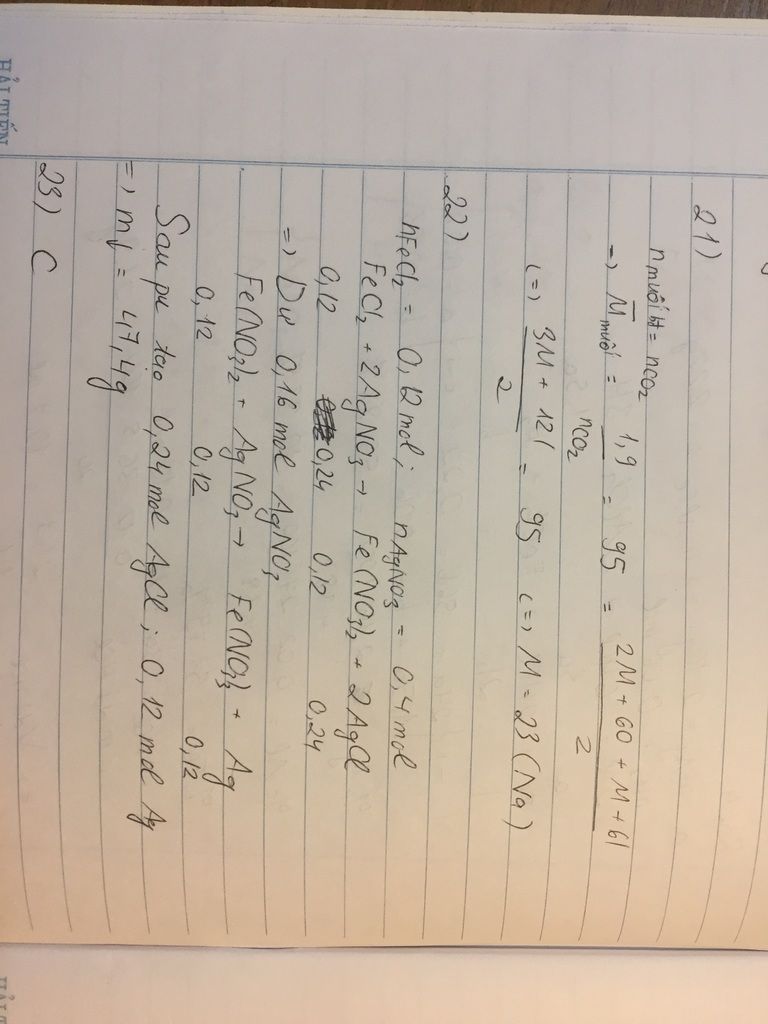 HẢI TIẾN
21)
n muối bđ = nCO2
=> M̅ muối = 1,9 / nCO2 = 95 = 2M + 60 + M + 61 / 2
<=> 3M + 121 / 2 = 95 <=> M = 23 (Na)
22)
nFeCl2 = 0,12 mol; nAgNO3 = 0,4 mol
FeCl2 + 2AgNO3 → Fe(NO3)2 + 2AgCl
0,12 0,24 0,12 0,24
=> Dư 0,16 mol AgNO3
Fe(NO3)2 + AgNO3 → Fe(NO3)3 + Ag
0,12 0,12 0,12
Sau pư tạo 0,24 mol AgCl; 0,12 mol Ag
=> m↓ = 47,4g
23) C